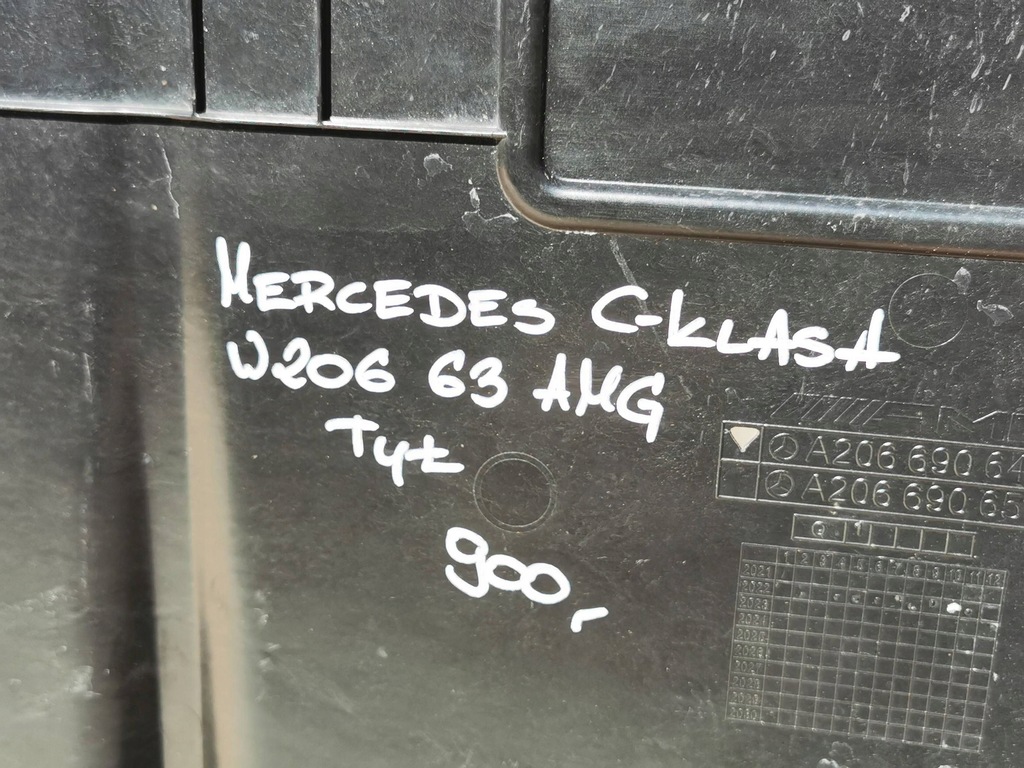 MERCEDES C-KLASA
W206 63 AMG
Tył
900,-
AM
A206 690 64
A206 690 65
Q 1
1 2 3 4 5 6 7 8 9 10 11 12
2021
2022
2023
2024